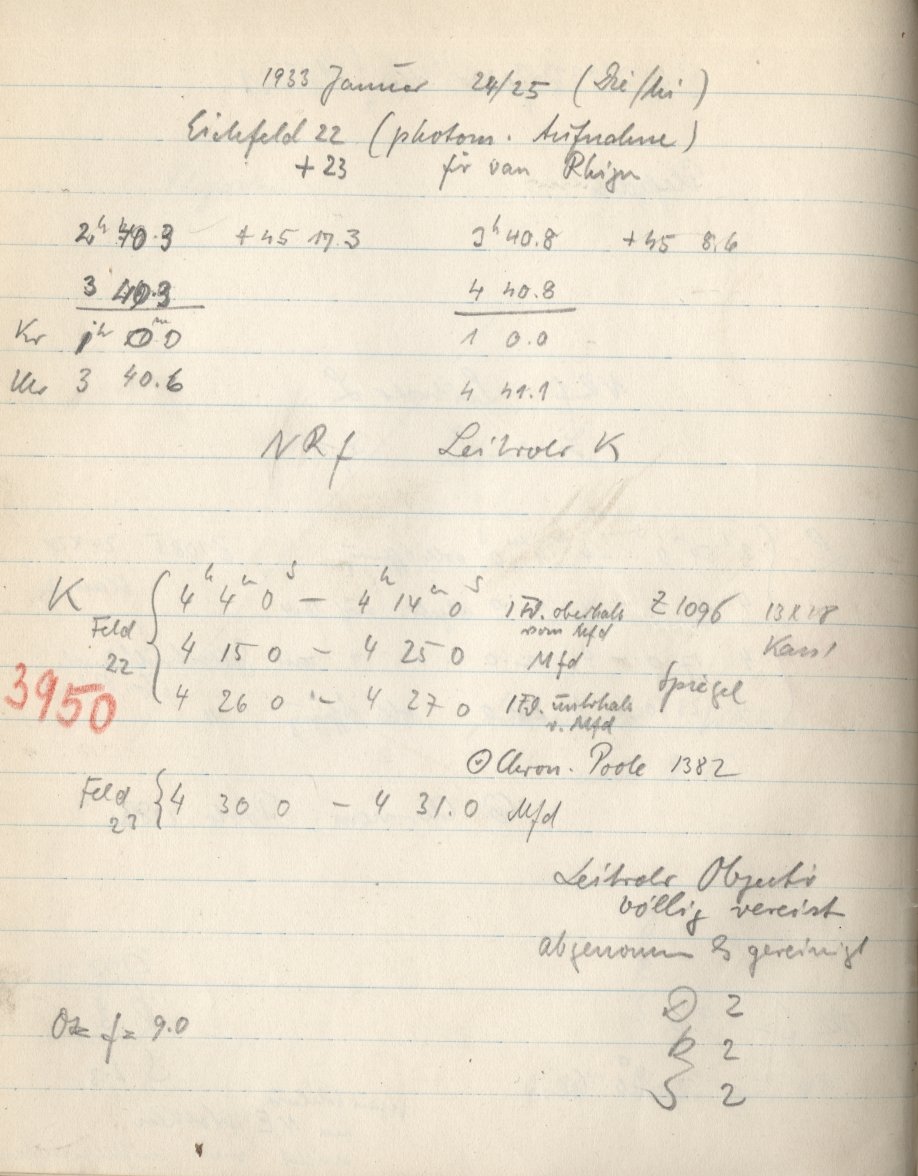 1933 Januar 24/25 (Die/Mi)
Eichfeld 22 (photom. Aufnahme)
+ 23 für van Rhijn
2h 40.3 +45 17.3 3h 40.8 +45 8.6
3 40.3 4 40.8
1h 0m 0 1 0.0
Uhr 3 40.6 4 41.1
NRf Leitrohr K
K 4h 4m 0s – 4h 14m 0s 1 Fd. oberhalb Z 1096 13x18
Feld vom Mfd
22 4 15 0 – 4 25 0 Mfd
3950 4 26 0 – 4 27 0 1 Fd. unterhalb Spiegel
v. Mfd
⊙ Chron. Poole 1382
Feld 4 30 0 – 4 31.0 Mfd
23
Leitrohr Objectiv
völlig vereist
abgenommen & gereinigt
f = 9.0 D 2
R 2
S 2